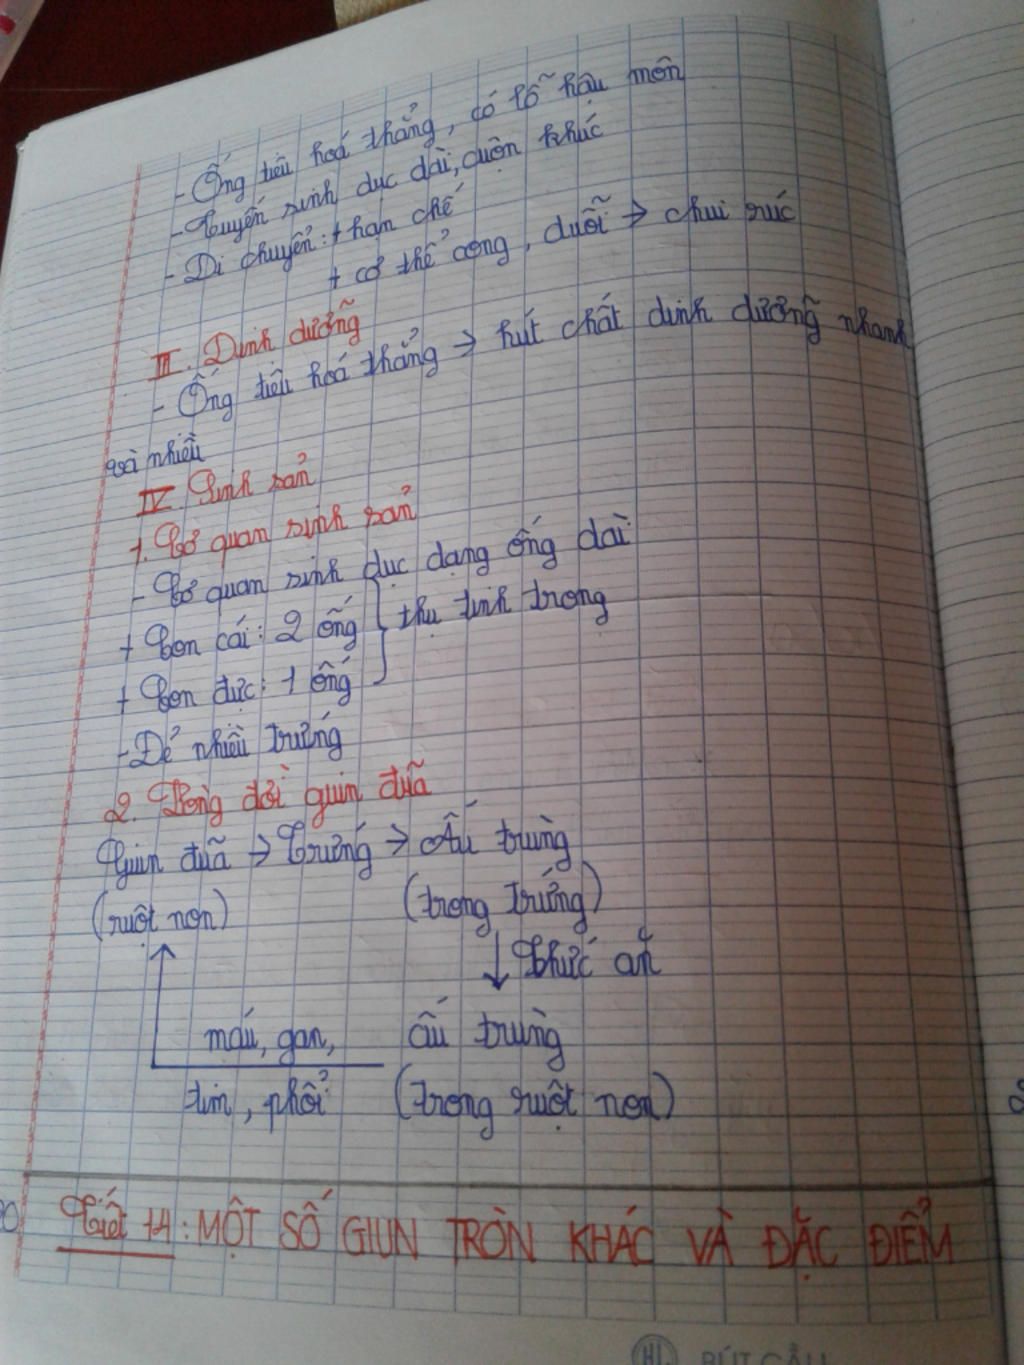 - Ống tiêu hoá thẳng, có lỗ hậu môn
- Tuyến sinh dục dài, cuộn khúc
- Di chuyển: + hạn chế
+ cơ thể cong, duỗi → chui rúc
III. Dinh dưỡng
- Ống tiêu hoá thẳng → hút chất dinh dưỡng nhanh
và nhiều
IV. Sinh sản
1. Cơ quan sinh sản
- Cơ quan sinh dục dạng ống dài
+ Con cái: 2 ống } thụ tinh trong
+ Con đực: 1 ống
- Đẻ nhiều trứng
2. Vòng đời giun đũa
Giun đũa → Trứng → Ấu trùng
(ruột non) (trong trứng)
↓ Thức ăn
máu, gan, ấu trùng
tim, phổi (trong ruột non)
Tiết 14: MỘT SỐ GIUN TRÒN KHÁC VÀ ĐẶC ĐIỂM